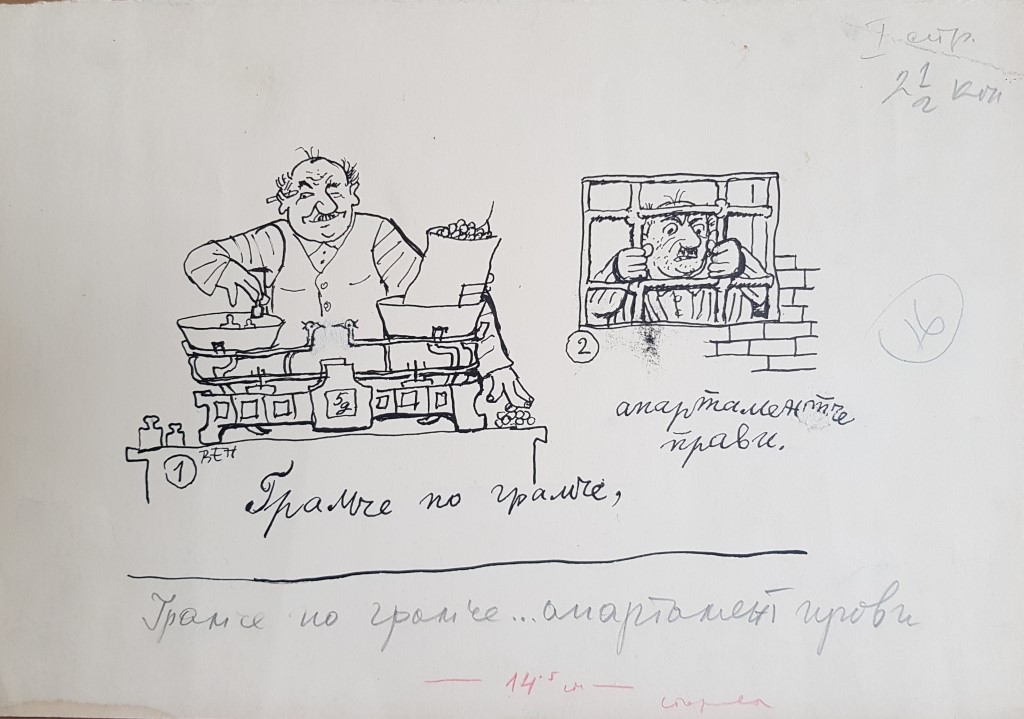 I стр.
2 1/2 кол
16
5g
2
апартаментче
прави.
1
ВЕН
Грамче по грамче,
Грамче по грамче... апартамент прави
14.5 см